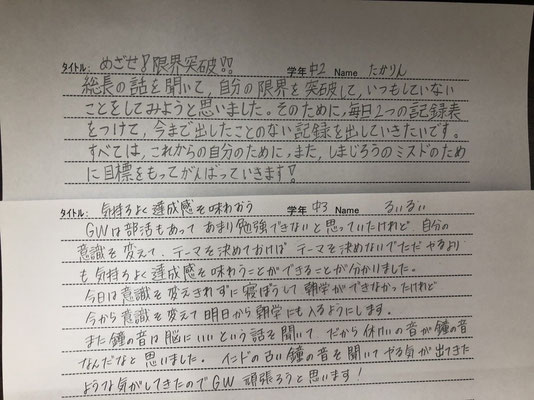 タイトル: めざせ!限界突破!! 学年 中2 Name たかりん
総長の話を聞いて、自分の限界を突破して、いつもしていない
ことをしてみようと思いました。そのために、毎日2つの記録表
をつけて、今まで出したことのない記録を出していきたいです。
すべては、これからの自分のために、また、しまじろうのミスドのため
に目標をもってがんばっていきます!
タイトル: 気持ちよく達成感を味わおう 学年 中3 Name るいるい
GWは部活もあって あまり勉強できないと思っていたけれど 自分の
意識を変えて、テーマを決めておけば テーマを決めないでただやるより
も気持ちよく達成感を味わうことができることが分かりました。
今日は意識を変えきれずに寝ぼうして 朝学ができなかったけれど
今から意識を変えて明日から朝学にも入るようにします。
また鐘の音は脳にいいという話を聞いて だから休けいの音が鐘の音
なんだなと思いました。 インドの古い鐘の音を聞いてやる気が出てきた
ような気がしてきたのでGW 頑張ろうと思います!